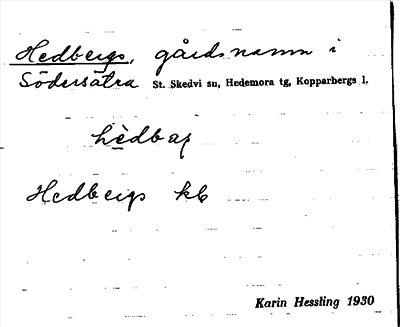 Hedbergs, gårdsnamn i
Södersätra St. Skedvi sn, Hedemora tg, Kopparbergs l.
Hedbergs kb
Karin Hessling 1930